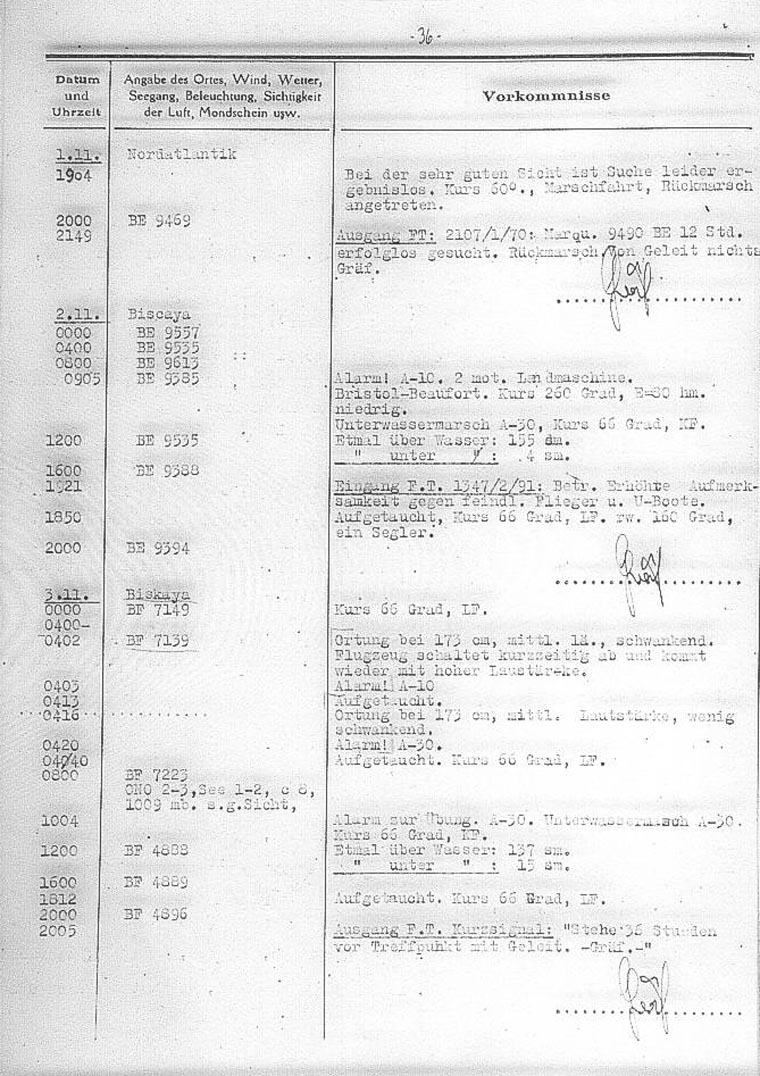 -36-
Datum
und
Uhrzeit
Angabe des Ortes, Wind, Wetter,
Seegang, Beleuchtung, Sichtigkeit
der Luft, Mondschein usw.
Vorkommnisse
1.11. Nordatlantik
1904 Bei der sehr guten Sicht ist Suche leider er-
gebnislos. Kurs 60°., Marschfahrt, Rückmarsch
angetreten.
2000 BE 9469
2149 Ausgang FT: 2107/1/70: Marqu. 9490 BE 12 Std.
erfolglos gesucht. Rückmarsch. Von Geleit nichts
Gräf.
2.11. Biscaya
0000 BE 9557
0400 BE 9535
0800 BE 9613
0905 BE 9385 Alarm! A-10. 2 mot. Landmaschine.
Bristol-Beaufort. Kurs 260 Grad, E=80 hm.
niedrig.
Unterwassermarsch A-30, Kurs 66 Grad, KF.
1200 BE 9535 Etmal über Wasser: 155 sm.
" unter " : 4 sm.
1600 BE 9388
1921 Eingang F.T. 1347/2/91: Betr. Erhöhte Aufmerk-
samkeit gegen feindl. Flieger u. U-Boote.
1850 Aufgetaucht, Kurs 66 Grad, LF. rw. 160 Grad,
ein Segler.
2000 BE 9394
3.11. Biskaya
0000 BF 7149 Kurs 66 Grad, LF.
0400-
0402 BF 7139 Ortung bei 173 cm, mittl. lä., schwankend.
Flugzeug schaltet kurzzeitig ab und kommt
wieder mit hoher Lautstärke.
0403 Alarm! A-10
0413 Aufgetaucht.
0416 Ortung bei 173 cm, mittl. Lautstärke, wenig
schwankend.
0420 Alarm! A-30.
0440 Aufgetaucht. Kurs 66 Grad, LF.
0800 BF 7223
ONO 2-3,See 1-2, c 8,
1009 mb. s.g.Sicht,
1004 Alarm zur Übung. A-30. Unterwassermasch A-30.
Kurs 66 Grad, KF.
1200 BF 4888 Etmal über Wasser: 137 sm.
" unter " : 15 sm.
1600 BF 4889
1812 Aufgetaucht. Kurs 66 Grad, LF.
2000 BF 4896
2005 Ausgang F.T. Kurzsignal: "Stehe 36 Stunden
vor Treffpuhkt mit Geleit. -Gräf.-"